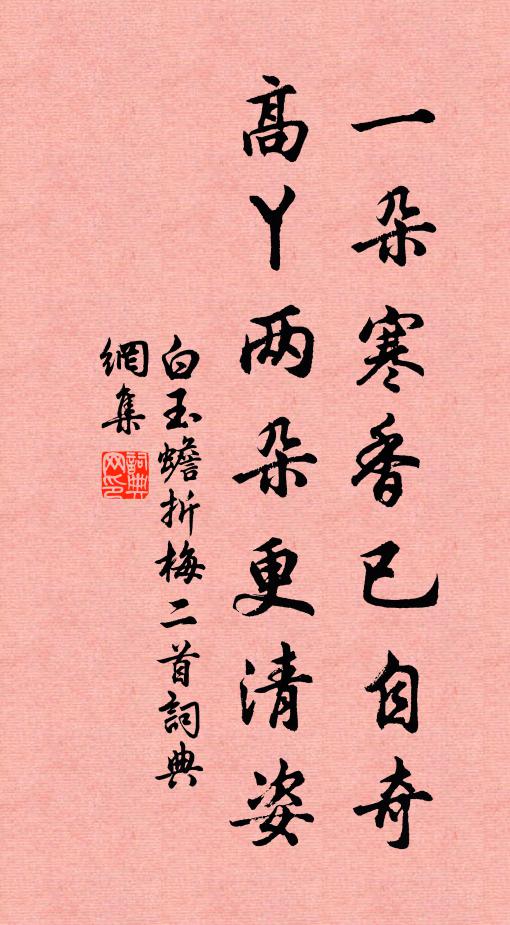 一朵寒香已自奇
高丫两朵更清姿
白玉蟾折梅二首詞典
網集
詞典
网印